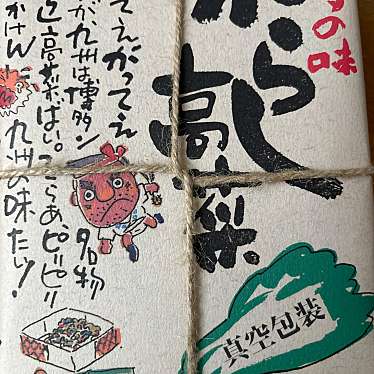 の味
からし
高菜
真空包装
てえがってえ
が、九州は博多ン
と高菜ばい。こらあ、ピーピー
かけん
九州の味たい!
名物